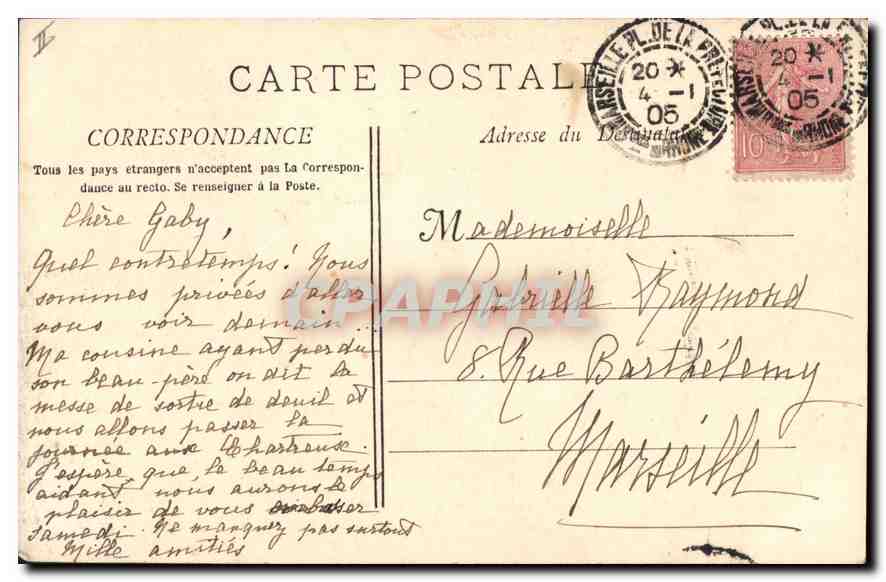 II
CARTE POSTALE
MARSEILLE PL. DE LA PREFECTURE
20 *
4 -1
05
MARSEILLE PL. DE LA PREFECTURE
20 *
4 -1
05
BOUCHES DU RHONE
10
CORRESPONDANCE
Tous les pays étrangers n'acceptent pas La Correspon-
dance au recto. Se renseigner à la Poste.
Chère Gaby,
Quel contretemps! Nous
sommes privées d'aller
vous voir demain..
Ma cousine ayant perdu
son beau-père on dit la
messe de sortie de deuil et
nous allons passer la
journée aux Chartreux.
J'espère que le beau temps
aidant nous aurons le
plaisir de vous
samedi. Ne manquez pas surtout
Mille amitiés
Adresse du Destinataire
Mademoiselle
Gabrielle Raymond
8. Rue Barthélemy
Marseille
CPAPHIL